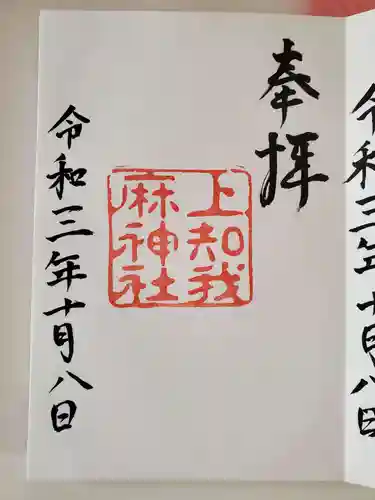 令和三年十月八日
奉拝
上知我
麻神社
令和三年十月八日